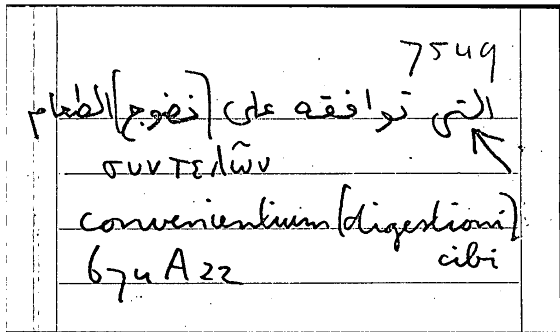 7549
التي توافقه على [نضوج] الطعام
συντελῶν
convenientium [digestioni]
cibi
674 A 22